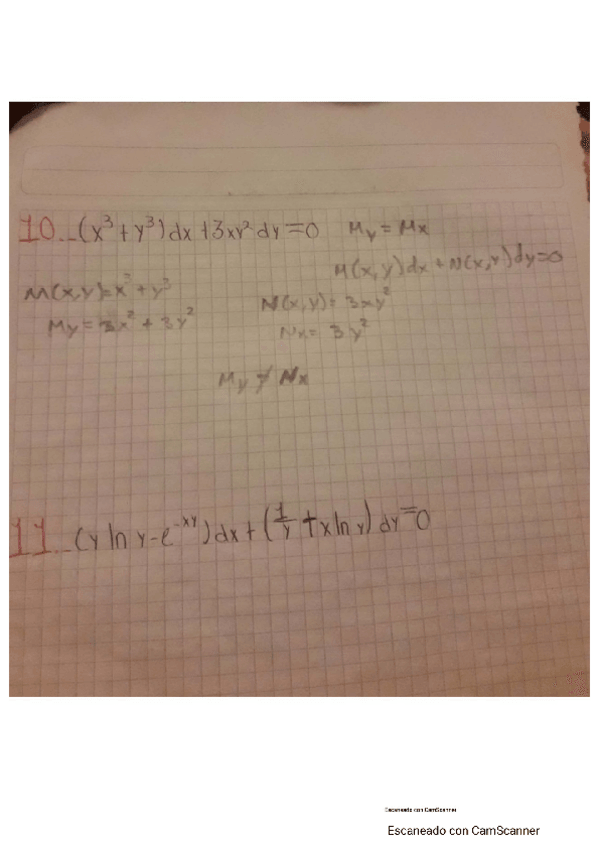 10._ (x³ + y³) dx + 3xy² dy = 0   My = Mx
M(x,y) dx + N(x,y) dy = 0
M(x,y) = x³ + y³   N(x,y) = 3xy²
My = 3x² + 3y²   Nx = 3y²
My ≠ Nx
11._ (y ln y - e^-xy) dx + (1/y + x ln y) dy = 0
Escaneado con CamScanner
Escaneado con CamScanner